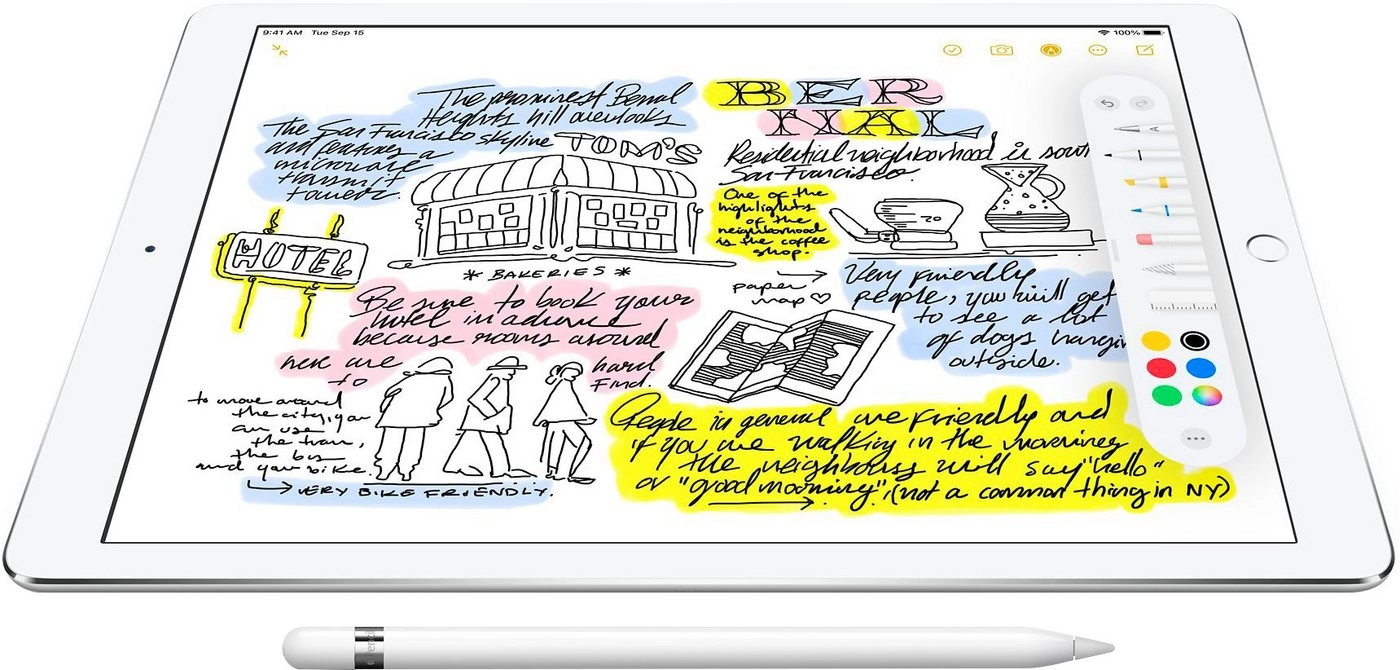 9:41 AM Tue Sep 15
100%
The prominest Bernal
Heights hill overlooks
The San Francisco skyline
and features a
microwave
transmit
tower.
BER
NAL
Residential neighborhood is sout
San Francisco.
TOM'S
One of the
highlights
of the
neighborhood
is the coffee
shop.
HOTEL
* BAKERIES *
paper
map ♡
Very friendly
people, you will get
to see a lot
of dogs hangin
outside.
Be sure to book your
hotel in advance
because rooms around
here are hard
to Find.
to move around
the city, you
can use
the train,
the bus
and your bike.
VERY BIKE FRIENDLY.
People in general are friendly and
if you are walking in the morning
the neighbours will say "hello"
or "good morning", (not a common thing in NY)
Pencil